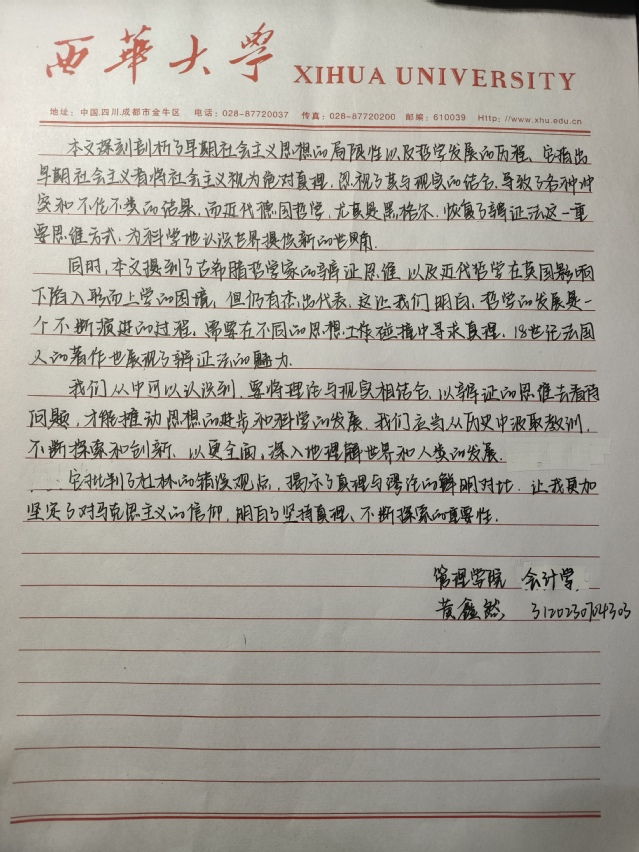 西華大学 XIHUA UNIVERSITY
地址：中国.四川.成都市金牛区 电话：028-87720037 传真：028-87720200 邮编：610039 Http://www.xhu.edu.cn
本文深刻剖析了早期社会主义思想的局限性以及哲学发展的历程。它指出
早期社会主义者将社会主义视为绝对真理，忽视了其与现实的结合，导致了各种冲
突和不伦不类的结果，而近代德国哲学，尤其是黑格尔，恢复了辩证法这一重
要思维方式，为科学地认识世界提供新的世角。
同时，本文提到了古希腊哲学家的辩证思维，以及近代哲学在英国影响
下陷入形而上学的困境，但仍有杰出代表，这让我们明白，哲学的发展是一
个不断演进的过程，需要在不同的思想碰撞中寻求真理，18世纪法国
人的著作也展现了辩证法的魅力.
我们从中可以认识到，要将理论与现实相结合，以辩证的思维去看待
问题，才能推动思想的进步和科学的发展，我们应当从历史中汲取教训，
不断探索和创新，以更全面，深入地理解世界和人类的发展.
它批判了杜林的错误观点，揭示了真理与谬论的鲜明对比，让我更加
坚定了对马克思主义的信仰，明白了坚持真理、不断探索的重要性.
管理学院 会计学
黄鑫然 3120230704303